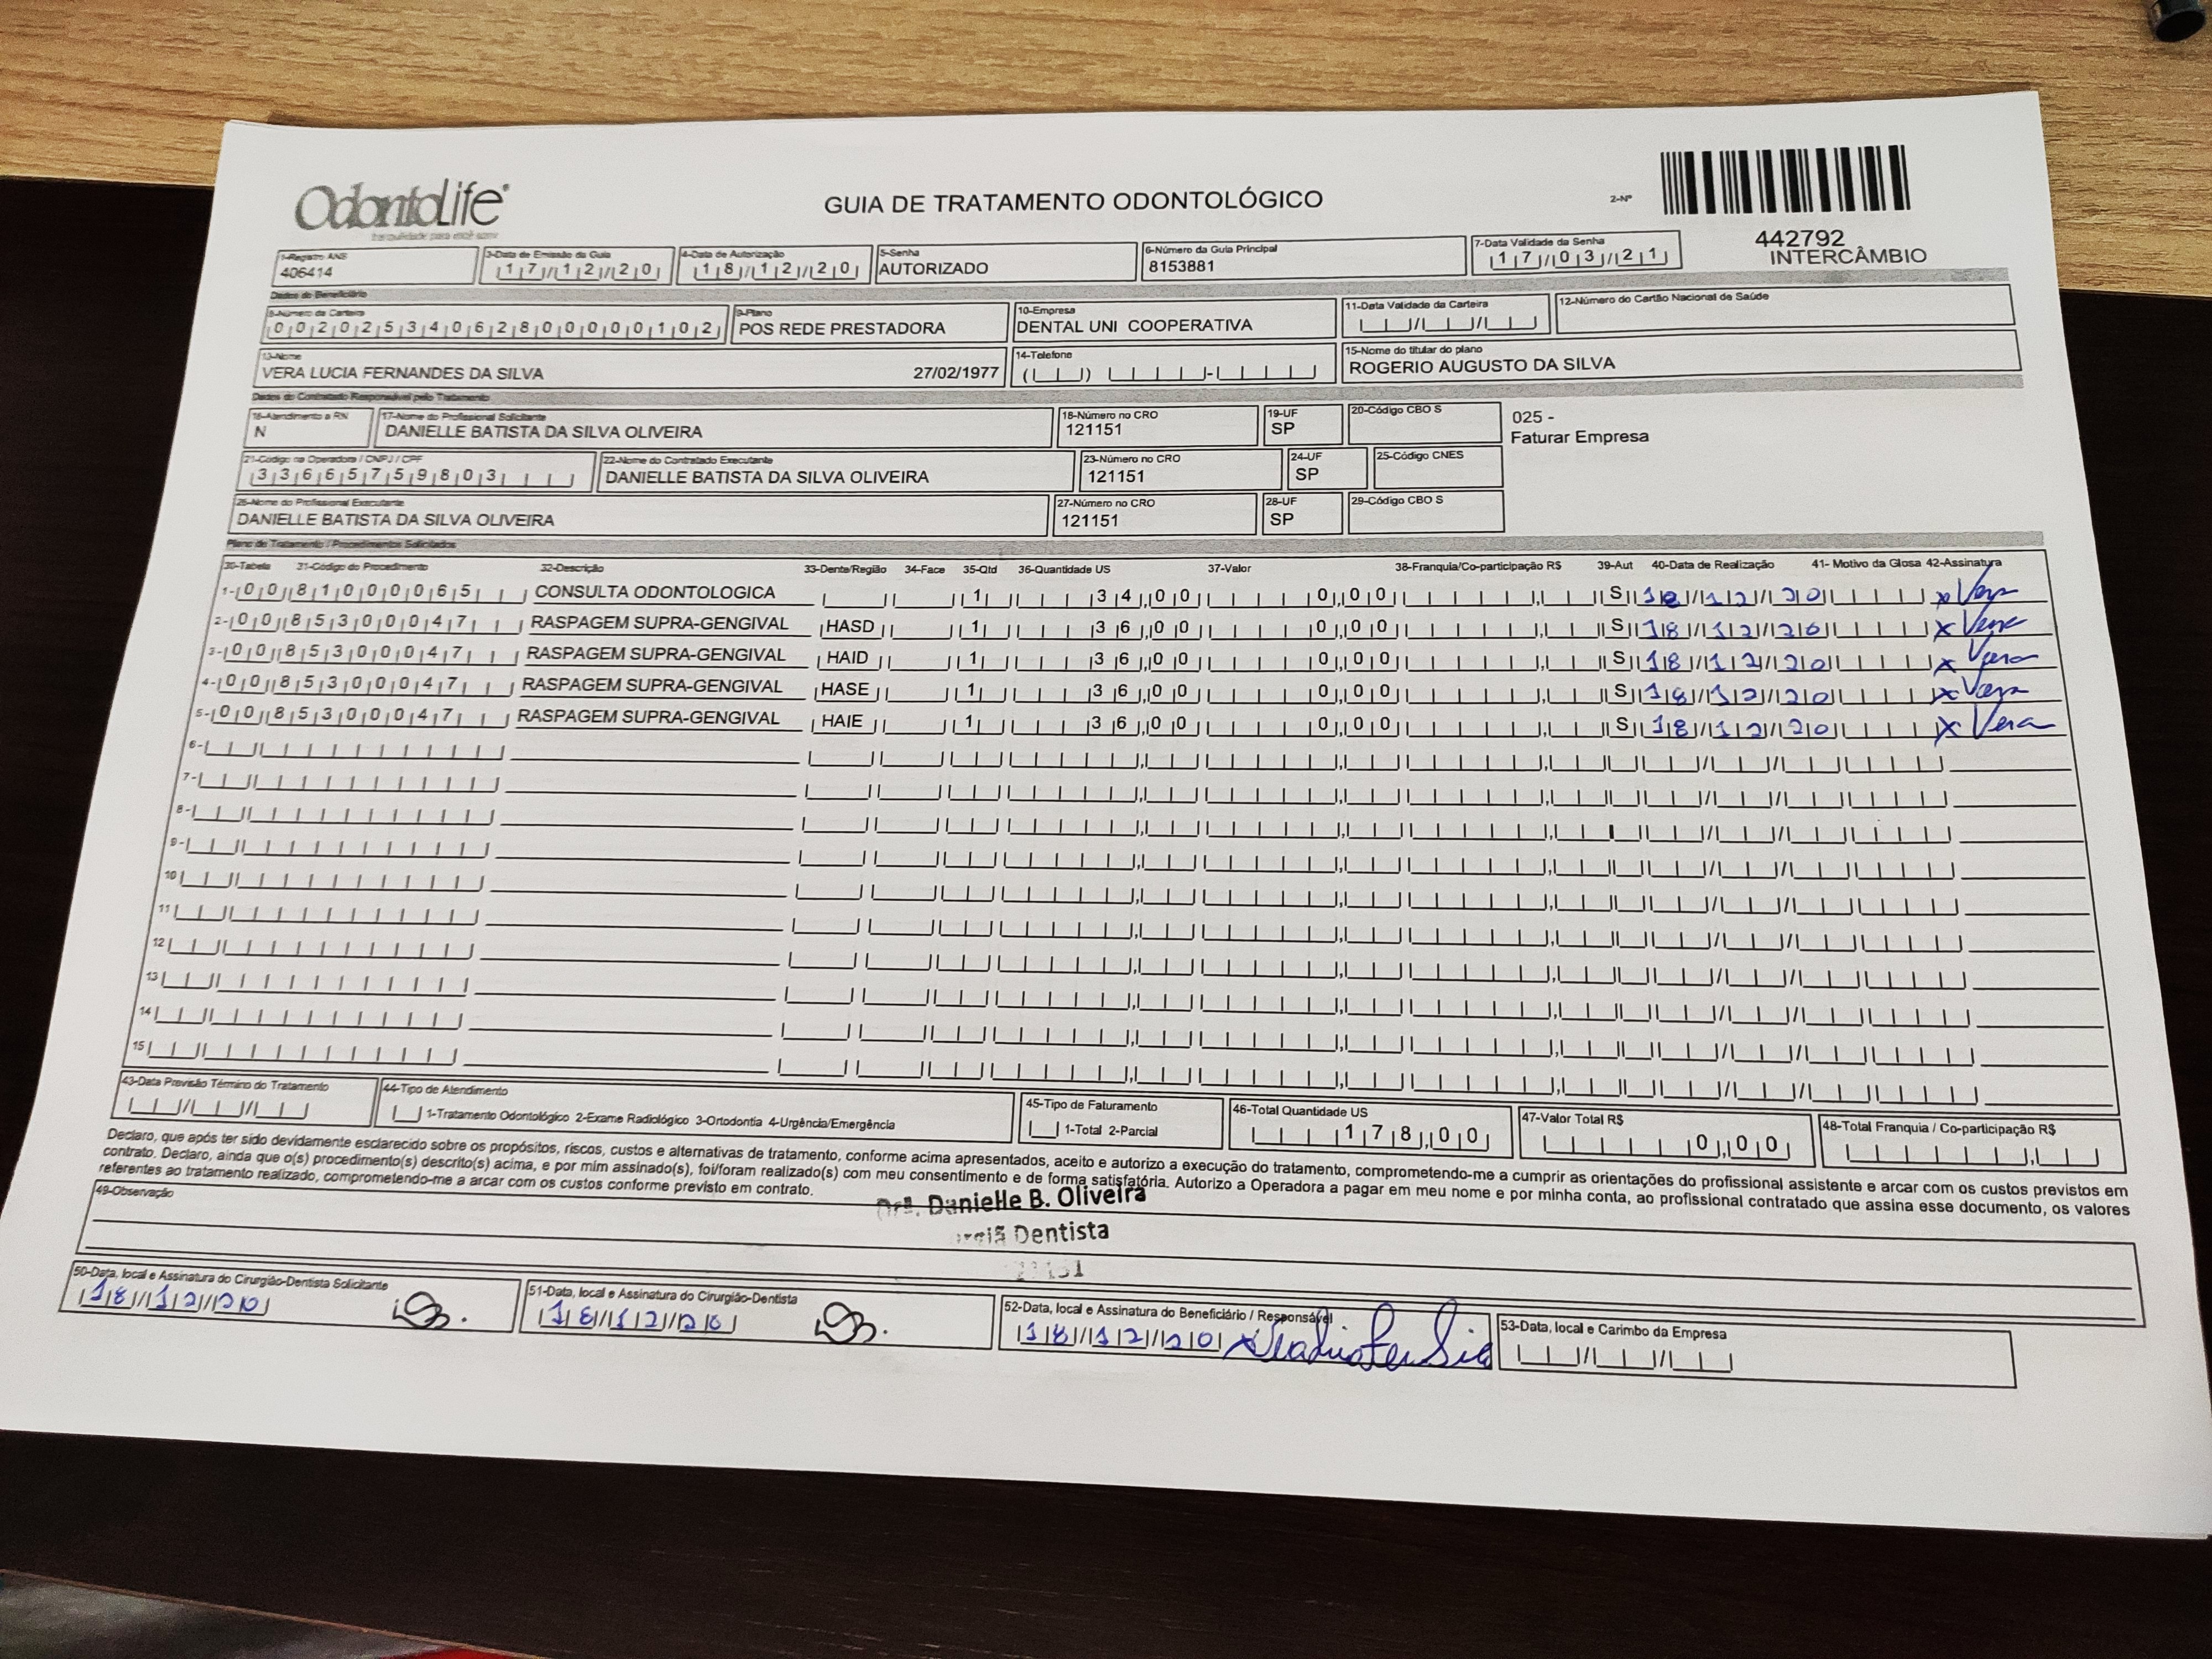 OdontoLife®
tranquilidade para você sorrir
GUIA DE TRATAMENTO ODONTOLÓGICO
2-Nº
442792
INTERCÂMBIO
1-Registro ANS
406414
3-Data de Emissão da Guia
17/12/20
4-Data de Autorização
18/12/20
5-Senha
AUTORIZADO
6-Número da Guia Principal
8153881
7-Data Validade da Senha
17/03/21
Dados do Beneficiário
8-Número da Carteira
00202534062800000102
9-Plano
POS REDE PRESTADORA
10-Empresa
DENTAL UNI COOPERATIVA
11-Data Validade da Carteira
12-Número do Cartão Nacional de Saúde
13-Nome
VERA LUCIA FERNANDES DA SILVA 27/02/1977
14-Telefone
15-Nome do titular do plano
ROGERIO AUGUSTO DA SILVA
Dados do Contratado Responsável pelo Tratamento
16-Atendimento a RN
N
17-Nome do Profissional Solicitante
DANIELLE BATISTA DA SILVA OLIVEIRA
18-Número no CRO
121151
19-UF
SP
20-Código CBO S
025 -
Faturar Empresa
21-Código na Operadora / CNPJ / CPF
33665759803
22-Nome do Contratado Executante
DANIELLE BATISTA DA SILVA OLIVEIRA
23-Número no CRO
121151
24-UF
SP
25-Código CNES
26-Nome do Profissional Executante
DANIELLE BATISTA DA SILVA OLIVEIRA
27-Número no CRO
121151
28-UF
SP
29-Código CBO S
Plano de Tratamento / Procedimentos Solicitados
30-Tabela 31-Código do Procedimento 32-Descrição 33-Dente/Região 34-Face 35-Qtd 36-Quantidade US 37-Valor 38-Franquia/Co-participação R$ 39-Aut 40-Data de Realização 41- Motivo da Glosa 42-Assinatura
1- 00 81000065 CONSULTA ODONTOLOGICA 1 34,00 0,00 S 18/12/20 x Vera
2- 00 85300047 RASPAGEM SUPRA-GENGIVAL HASD 1 36,00 0,00 S 18/12/20 x Vera
3- 00 85300047 RASPAGEM SUPRA-GENGIVAL HAID 1 36,00 0,00 S 18/12/20 x Vera
4- 00 85300047 RASPAGEM SUPRA-GENGIVAL HASE 1 36,00 0,00 S 18/12/20 x Vera
5- 00 85300047 RASPAGEM SUPRA-GENGIVAL HAIE 1 36,00 0,00 S 18/12/20 x Vera
6-
7-
8-
9-
10
11
12
13
14
15
43-Data Previsão Término do Tratamento
44-Tipo de Atendimento
1-Tratamento Odontológico 2-Exame Radiológico 3-Ortodontia 4-Urgência/Emergência
45-Tipo de Faturamento
1-Total 2-Parcial
46-Total Quantidade US
178,00
47-Valor Total R$
0,00
48-Total Franquia / Co-participação R$
Declaro, que após ter sido devidamente esclarecido sobre os propósitos, riscos, custos e alternativas de tratamento, conforme acima apresentados, aceito e autorizo a execução do tratamento, comprometendo-me a cumprir as orientações do profissional assistente e arcar com os custos previstos em
contrato. Declaro, ainda que o(s) procedimento(s) descrito(s) acima, e por mim assinado(s), foi/foram realizado(s) com meu consentimento e de forma satisfatória. Autorizo a Operadora a pagar em meu nome e por minha conta, ao profissional contratado que assina esse documento, os valores
referentes ao tratamento realizado, comprometendo-me a arcar com os custos conforme previsto em contrato.
49-Observação
Dra. Danielle B. Oliveira
Dentista
50-Data, local e Assinatura do Cirurgião-Dentista Solicitante
18/12/20
51-Data, local e Assinatura do Cirurgião-Dentista
18/12/20
52-Data, local e Assinatura do Beneficiário / Responsável
18/12/20
53-Data, local e Carimbo da Empresa